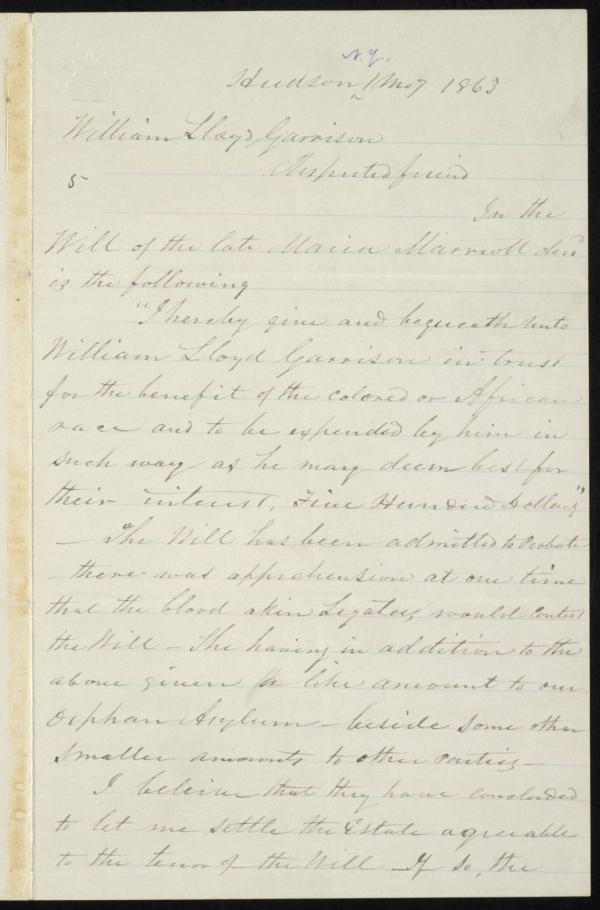 N.Y.
Hudson 1 Mo 7 1863
William Lloyd Garrison
5
Respected friend
In the
Will of the late Maria Marriott decd
is the following
"I hereby give and bequeath unto
William Lloyd Garrison in trust
for the benefit of the colored or African
race and to be expended by him in
such way as he may deem best for
their interest, Five Hundred Dollars"
— The Will has been admitted to Probate
— there was apprehension at one time
that the blood akin Legatees would Contest
the Will — She having in addition to the
above given a like amount to our
Orphan Asylum — beside some other
smaller amounts to other parties —
I beleive that they have concluded
to let me settle the Estate agreeable
to the tenor of the Will — If so, the